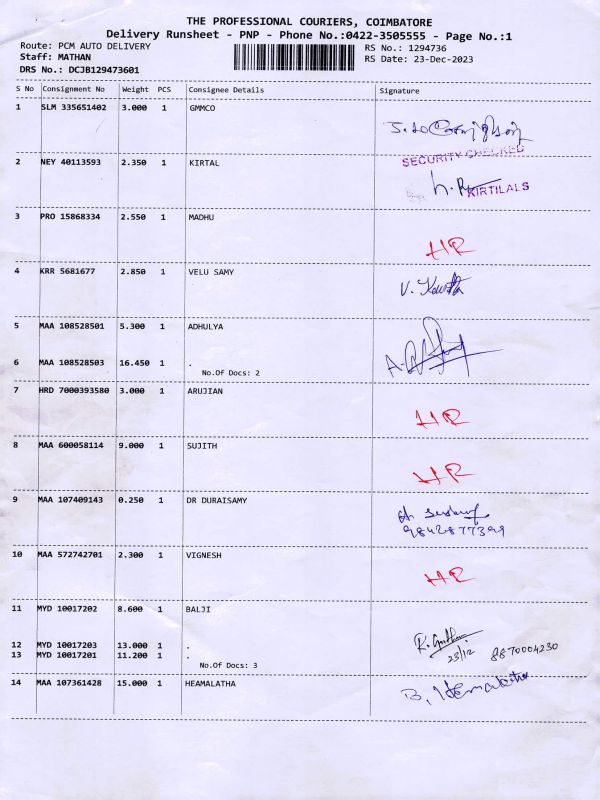 THE PROFESSIONAL COURIERS, COIMBATORE
Delivery Runsheet - PNP - Phone No.:0422-3505555 - Page No.:1
Route: PCM AUTO DELIVERY RS No.: 1294736
Staff: MATHAN RS Date: 23-Dec-2023
DRS No.: DCJB129473601
S No Consignment No Weight PCS Consignee Details Signature
1 SLM 335651402 3.000 1 GMMCO
SECURITY CHECKED
2 NEY 40113593 2.350 1 KIRTAL
KIRTILALS
3 PRO 15868334 2.550 1 MADHU
HR
4 KRR 5681677 2.850 1 VELU SAMY
V.
5 MAA 108528501 5.300 1 ADHULYA
6 MAA 108528503 16.450 1 .
No.Of Docs: 2
7 HRD 7000393580 3.000 1 ARUJIAN
HR
8 MAA 600058114 9.000 1 SUJITH
HR
9 MAA 107409143 0.250 1 DR DURAISAMY
9842877399
10 MAA 572742701 2.300 1 VIGNESH
HR
11 MYD 10017202 8.600 1 BALJI
12 MYD 10017203 13.000 1 .
23/12 8870004230
13 MYD 10017201 11.200 1 .
No.Of Docs: 3
14 MAA 107361428 15.000 1 HEAMALATHA
B. Hemalatha